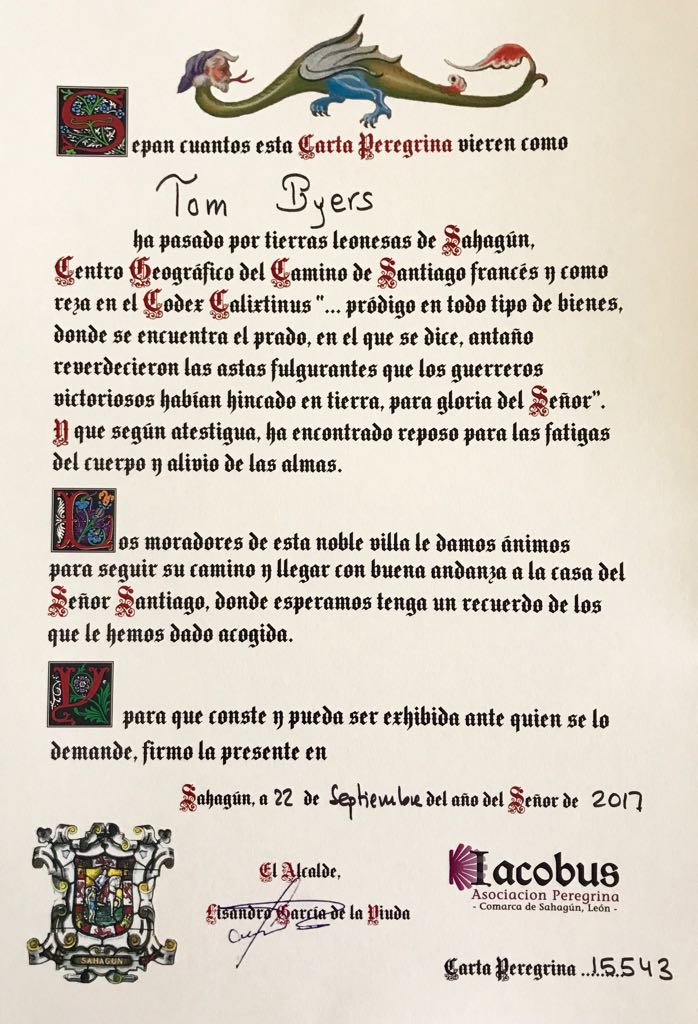 Sepan cuantos esta Carta Peregrina vieren como
Tom Byers
ha pasado por tierras leonesas de Sahagún,
Centro Geográfico del Camino de Santiago francés y como
reza en el Codex Calixtinus "... pródigo en todo tipo de bienes,
donde se encuentra el prado, en el que se dice, antaño
reverdecieron las astas fulgurantes que los guerreros
victoriosos habían hincado en tierra, para gloria del Señor".
Y que según atestigua, ha encontrado reposo para las fatigas
del cuerpo y alivio de las almas.
Los moradores de esta noble villa le damos ánimos
para seguir su camino y llegar con buena andanza a la casa del
Señor Santiago, donde esperamos tenga un recuerdo de los
que le hemos dado acogida.
Y para que conste y pueda ser exhibida ante quien se lo
demande, firmo la presente en
Sahagún, a 22 de Septiembre del año del Señor de 2017
El Alcalde,
Lisandro García de la Viuda
SAHAGUN
Iacobus
Asociacion Peregrina
- Comarca de Sahagún, León -
Carta Peregrina ...15.543